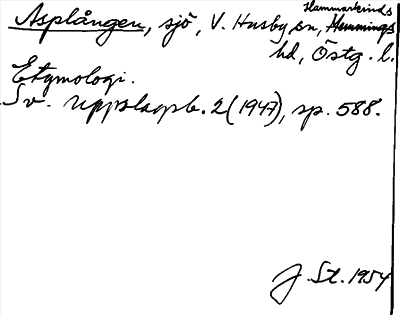 Hammarkinds
Asplången, sjö, V. Husby sn, Hemmings
hd, Östg. l.
Etymologi.
Sv. Uppslagsb. 2 (1947), sp. 588.
J. St. 1954